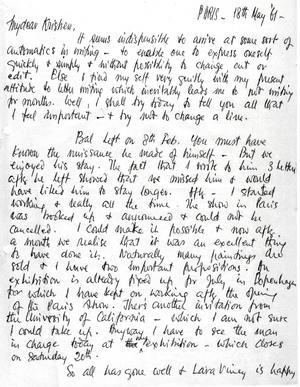 PARIS - 18th May '61 -
My dear Krishen,
It seems indispensible to arrive at some sort of
automatics in writing - to enable one to express oneself
quickly & simply & without possibility to change, cut or
edit. Else I find my self very guilty with my present
attitude to letter writing which inevitably leads me to not writing
for months. Well, I shall try today to tell you all that
I feel important - & try not to change a line.
Bal left on 8th Feb. You must have
known the nuissance he made of himself - But we
enjoyed his stay. The fact that I wrote to him 3 letters
after he left showed that we missed him & would
have liked him to stay longer. I started
working & really all the time. The show in Paris
was booked up & announced & could not be
cancelled. I could make it possible & now after
a month we realise that it was an excellent thing
to have done it. Naturally many paintings are
sold & I have two important propositions. An
exhibition is already fixed up for July in Copenhagen
for which I have kept on working after the opening
of the Paris show. There's another invitation from
the University of California - which I am not sure
I could take up. Anyway I have to see the man
in charge today at exhibition - which closes
on Saturday 20th.
So all has gone well & Lara Viney is happy